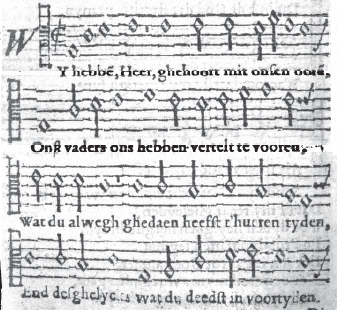 WY hebbē, Heer, ghehoort mit onsen oorē,
Onse vaders ons hebben vertelt te vooren,
Wat du alwegh ghedaen heefst t'hueren tyden,
End desghelycks wat du deedst in voortyden.